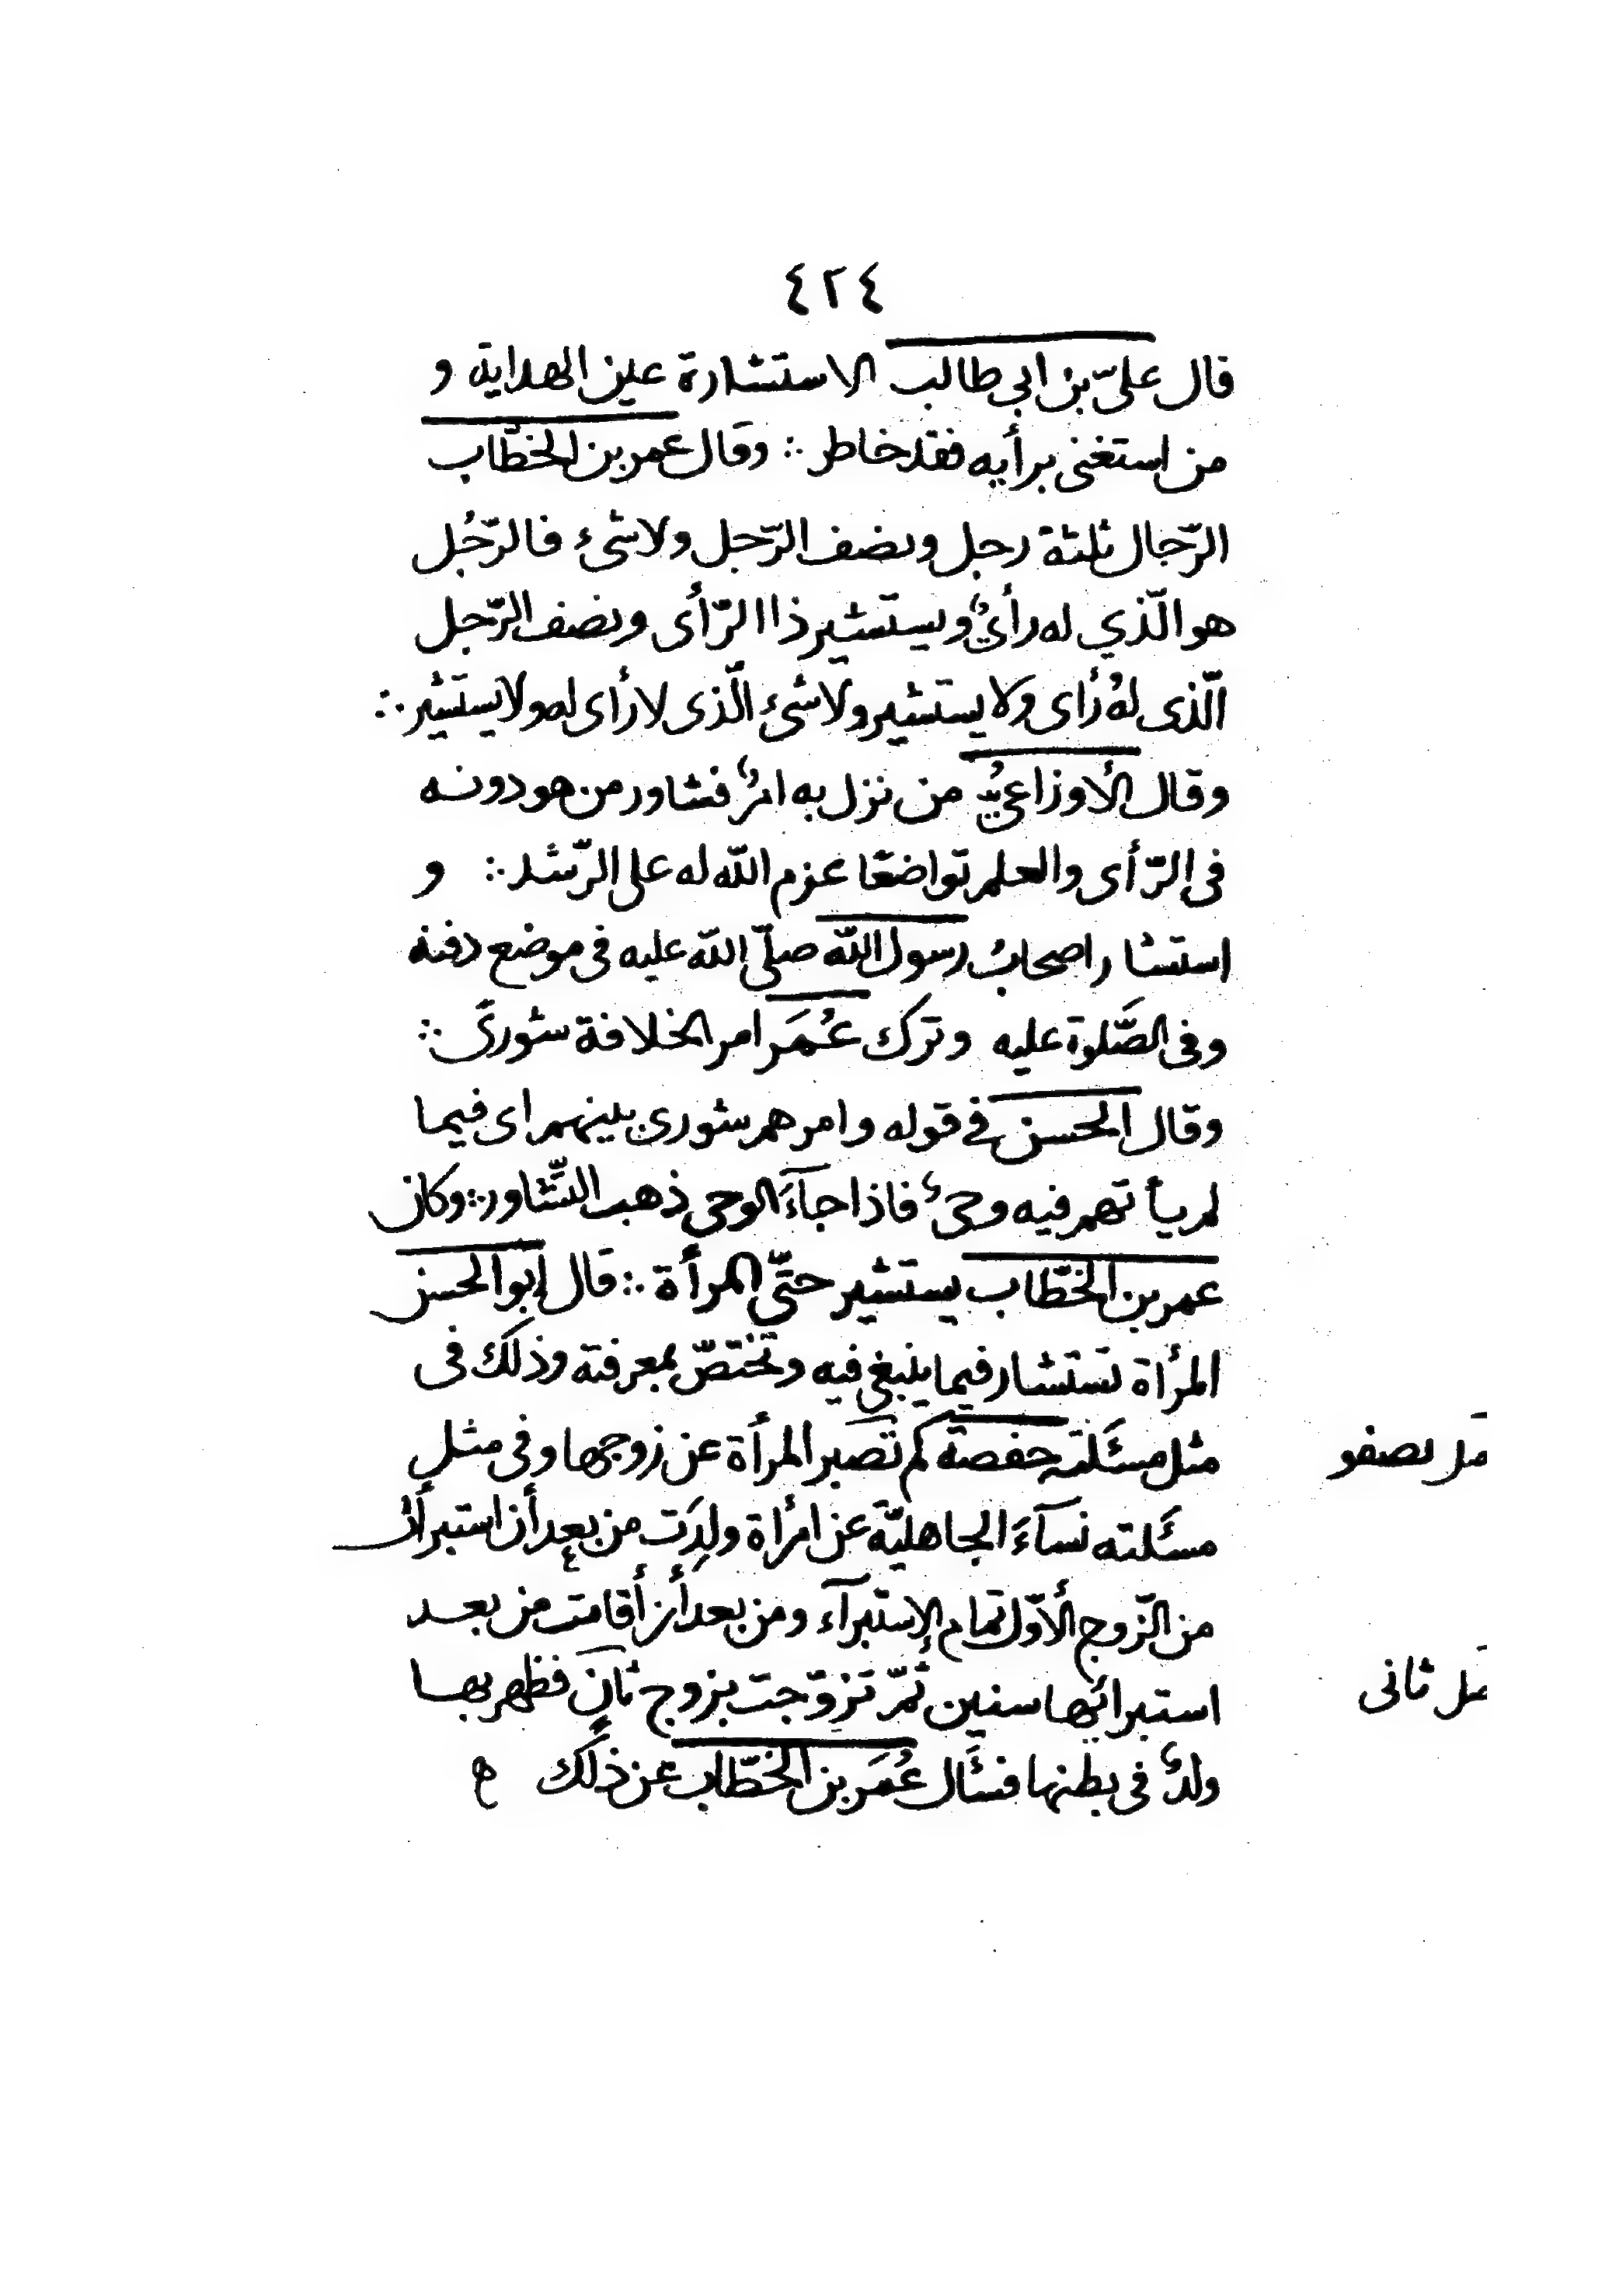 ٤٢٤
قال عليّ بن ابي طالب الاستشارة عين الهداية و
من استغنى برأيه فقد خاطر ∴ وقال عمر بن الخطّاب
الرّجال ثلثة رجل ونصف الرّجل ولا شئ فالرّجُل
هو الّذي له رأىٌ ويستشير ذا الرّأى ونصف الرّجل
الّذى لهُ رأى ولا يستشير ولا شئ الّذى لا رأى له ولا يستشير ∴
وقال الأوزاعيُّ من نزل به امرٌ فشاور من هو دونه
فى الرّأى والعلم تواضعًا عزم اللّه له على الرّشد ∴ و
استشار اصحابُ رسول اللّه صلّى اللّه عليه فى موضع دفنه
وفى الصَّلوة عليه وترك عُمَر امر الخلافة شورىً ∴
وقال الحسن فى قوله وامرهم شورى بينهم اى فيما
لم يأتهم فيه وحىٌ فاذا جآءَ الوحى ذهب التّشاور ∴ وكان
عمر بن الخطّاب يستشير حتّى المرأة ∴ قال ابو الحسن
المرأة تستشار فيما ينبغى فيه وتختصّ بمعرفته وذلك فى
مثل مسئَلته حفصة كم تصبر المرأة عن زوجها وفى مثل
مسئَلته نسآءَ الجاهليّة عن امرأة ولدَت من بعد أن استبرأت
من الزّوج الأوّل تمام الإستبرآء ومن بعد أن أقامت من بعد
استبرائها سنين ثمّ تزوّجت بزوج ثانٍ فظهر بها
ولدٌ فى بطنها فسَئَال عُمَر بن الخطّاب عن ذلك ه
ثانى